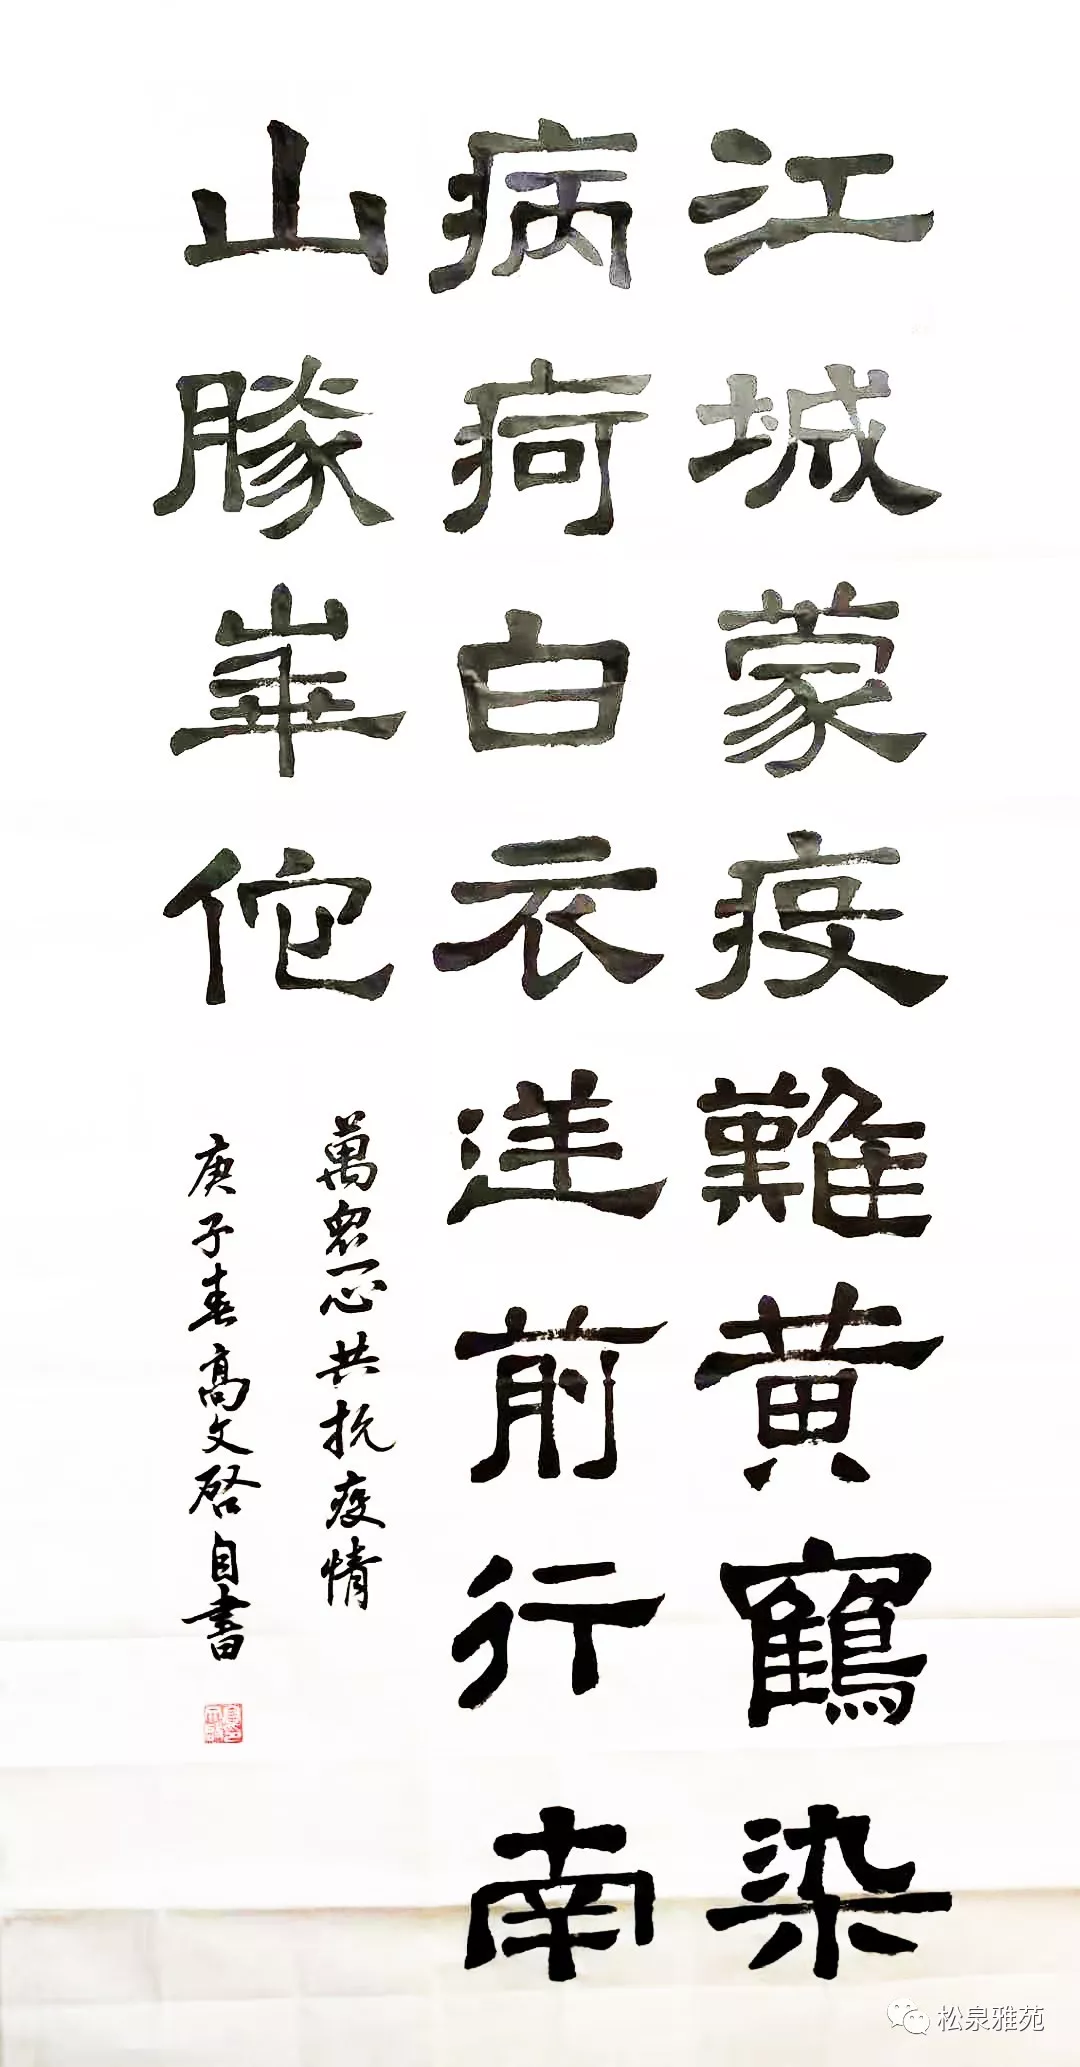 江城蒙疫難黄鶴染
病疴白衣逆前行南
山勝崋佗
萬眾一心共抗疫情
庚子春高文啓自書
松泉雅苑